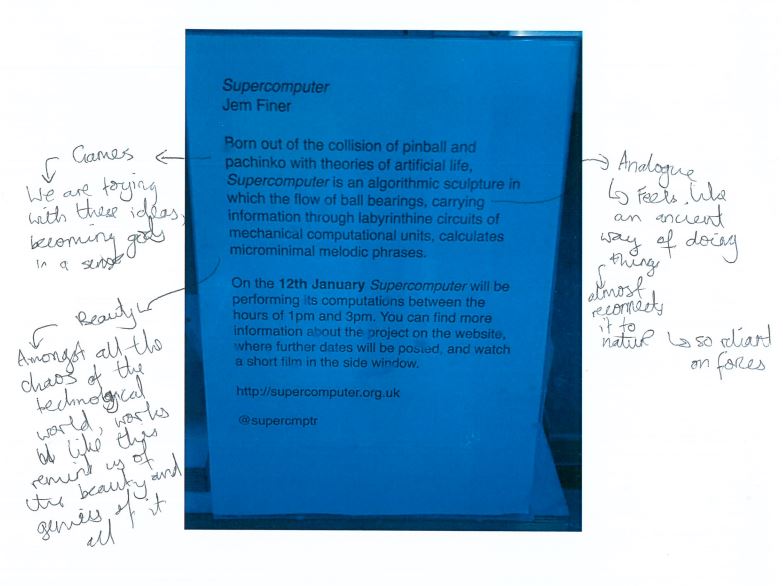 Supercomputer
Jem Finer
Born out of the collision of pinball and
pachinko with theories of artificial life,
Supercomputer is an algorithmic sculpture in
which the flow of ball bearings, carrying
information through labyrinthine circuits of
mechanical computational units, calculates
microminimal melodic phrases.
On the 12th January Supercomputer will be
performing its computations between the
hours of 1pm and 3pm. You can find more
information about the project on the website,
where further dates will be posted, and watch
a short film in the side window.
http://supercomputer.org.uk
@supercmptr
Games
We are toying
with these ideas,
becoming gods
in a sense
Beauty
Amongst all the
chaos of the
technological
world, works
like this
remind us of
the beauty and
genius of it
all
Analogue
Feels like
an ancient
way of doing
things
almost
reconnects
it to
nature
so reliant
on forces